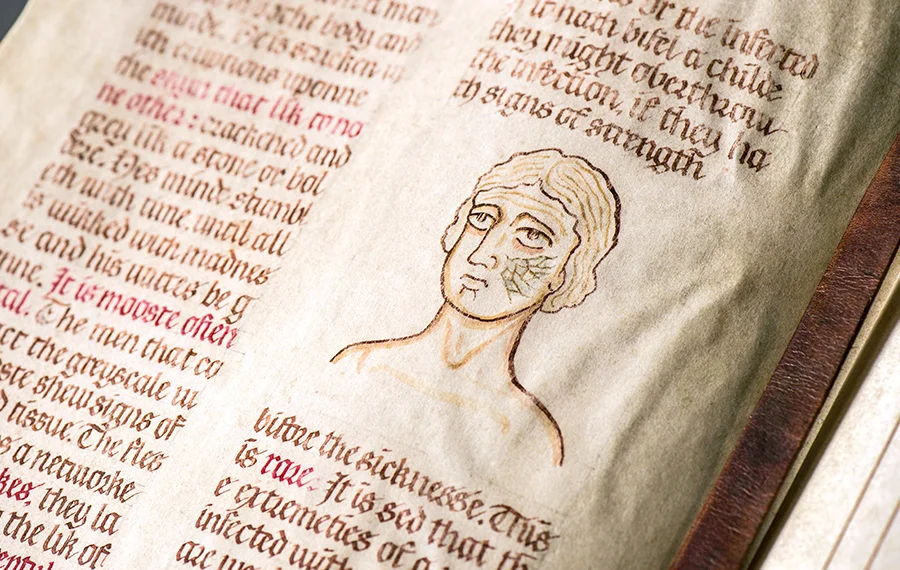 a man
body and
minde. He is stricken w
ith eruptions uponne
the skyn that lik to no
ne other : crackened and
grey lik a stone or bol
dre. Hes minde stumbl
eth with time, until all
is wirked with madnes
se and his wittes be g
une. It is mooste often
tal. The men that co
ct the greyscale w
ste shuw signs of
d tissue. The fles
s a networke
kes, they la
the lik of
or the infected
it nath bifel a childe
they might overthrow
the infection, if they ha
th signs of strength
bifore the sicknesse. This
is rare. It is sed that th
e extremeties of a
infected with
are wo